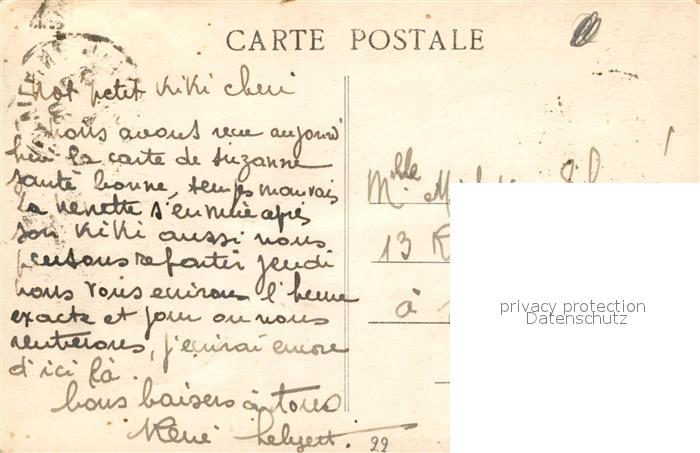 CARTE POSTALE
petit Kiki cheri
nous avons recu aujourd'
hui la carte de Suzanne
santé bonne, temps mauvais
la nenette s'ennuie après
son Kiki aussi nous
pensons repartir jeudi
nous vous ecrirons l'heure
exacte et jour ou nous
rentrerons, j'ecrirai encore
d'ici là.
bons baisers à tous
René
22
Mlle
13
à
privacy protection
Datenschutz